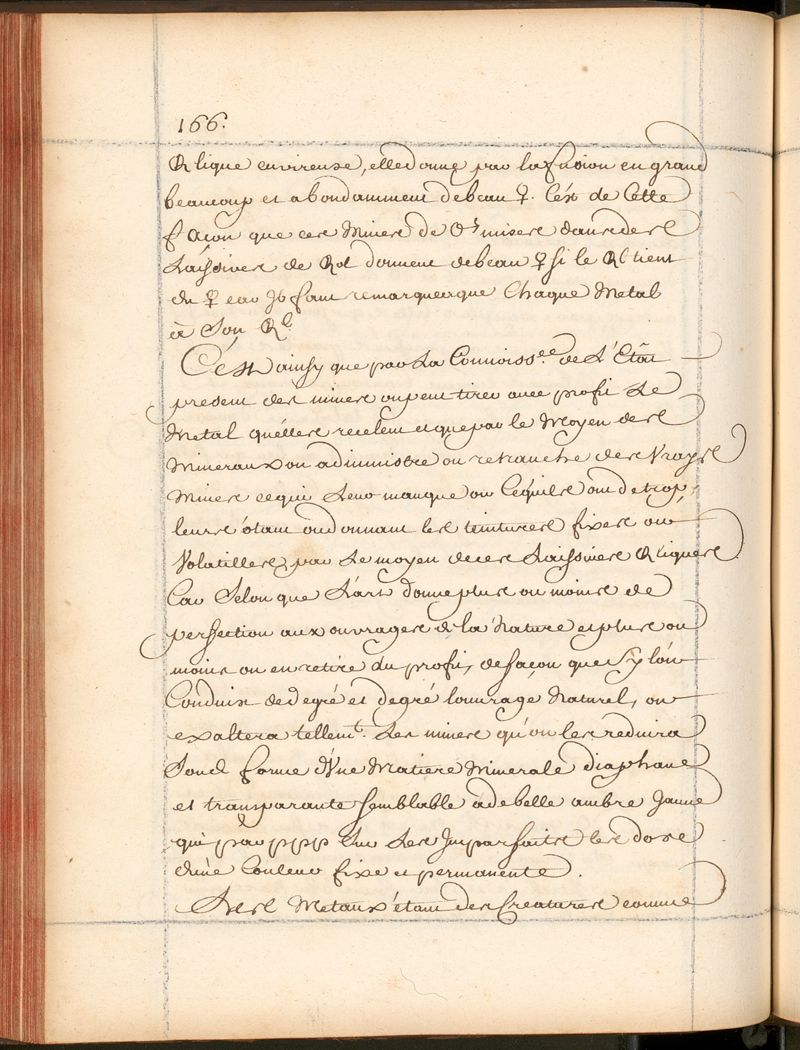 166.
Rlique envireuse, elle donne par la fusion en grand
beaucoup et abondamment de beau ♀. C'est de Cette
façon que ces Mines de misere dans des
Laissives de Rol donnent de beau ♀ si le Rl tient
du ♀ car Il faut remarquer que Chaque Metal
a Son Rl.
C'est ainsy que par La Connoiss.ce de L'Etat
present des mines on peut tirer avec profit Le
Metal qu'elles recelent et que par le Moyen des
Mineraux on administre ou retranche des Vrayes
Mines ce qui Leur manque ou Ce qu'ils ont de trop,
leurs ôtant ou donnant les teintures fixes ou
Volatilles, par Le moyen de ces Laissives Rliques
Car Selon que L'art donne plus ou moins de
perfection aux ouvrages de la Nature et plus ou
moins on en retire du profit, de façon que Sy l'on
Conduit de degré et degré l'ouvrage Naturel, on
exaltera tellem.t Les mines qu'on les reduira
Sous forme d'Vne Matiere Minerale diaphane
et transparante semblable a de belle ambre Jaune
qui par ppp Sur Les Imparfaits les dore
d'une Couleur fixe et permanente.
Les Metaux étant des Creatures comme